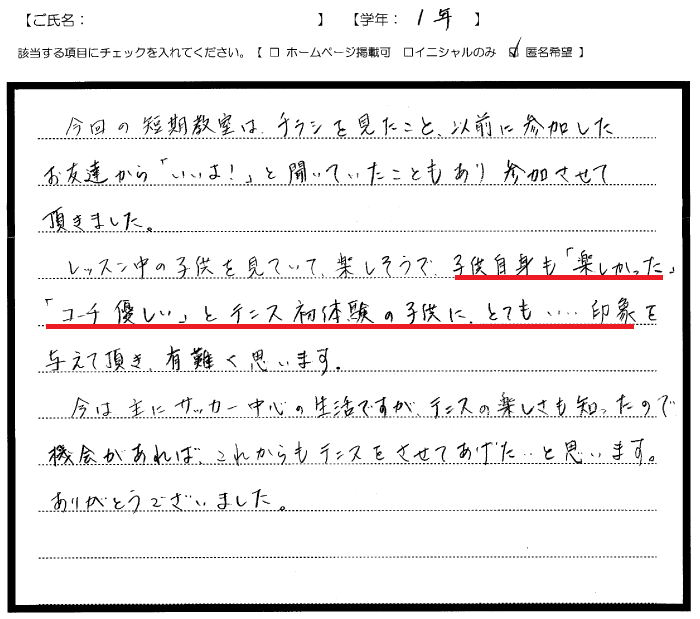 【ご氏名： 】 【学年： 1年 】
該当する項目にチェックを入れてください。【 □ ホームページ掲載可 □イニシャルのみ ☑ 匿名希望 】
今回の短期教室は、チラシを見たこと、以前に参加した
お友達から「いいよ！」と聞いていたこともあり 参加させて
頂きました。
レッスン中の子供を見ていて、楽しそうで 子供自身も「楽しかった」
「コーチ 優しい」と テニス 初体験の子供に、とてもいい 印象を
与えて頂き、有難く思います。
今は 主に サッカー中心の生活ですが、テニスの楽しさも知ったので
機会があれば、これからも テニスをさせてあげたいと思います。
ありがとうございました。